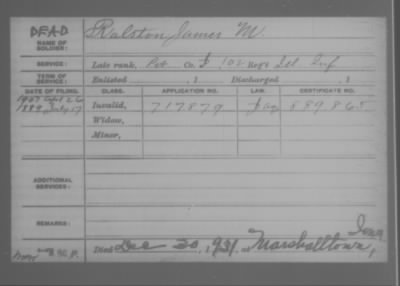 DEAD
NAME OF SOLDIER: Ralston James M.
SERVICE: Late rank, Pvt Co. I, 102 Reg't Ill Inf
TERM OF SERVICE: Enlisted , 1 Discharged , 1
DATE OF FILING. CLASS. APPLICATION NO. LAW. CERTIFICATE NO.
1889 July 17 Invalid, 717879 889865
Widow,
Minor,
ADDITIONAL SERVICES:
REMARKS:
Died Dec 20, 1931, at Marshalltown, Iowa